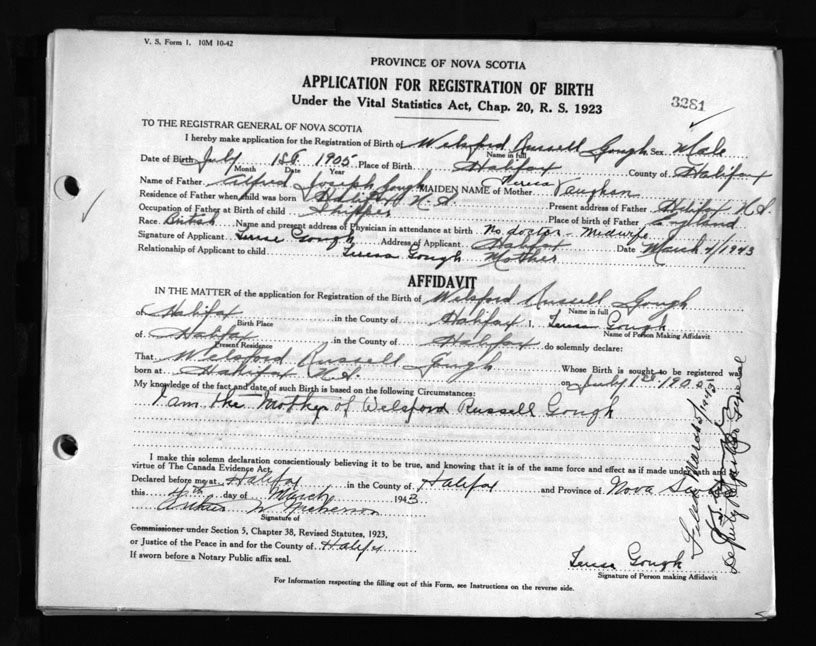 V. S. Form 1. 10M 10-42
PROVINCE OF NOVA SCOTIA
APPLICATION FOR REGISTRATION OF BIRTH
Under the Vital Statistics Act, Chap. 20, R. S. 1923
3281
TO THE REGISTRAR GENERAL OF NOVA SCOTIA
I hereby make application for the Registration of Birth of Welsford Russell Gough Sex Male
Name in full
Date of Birth July 1st 1905 Place of Birth Halifax County of Halifax
Month Date Year
Name of Father Alfred Joseph Gough MAIDEN NAME of Mother Teresa Vaughan
Residence of Father when child was born Halifax N.S. Present address of Father Halifax N.S.
Occupation of Father at Birth of child Skipper Place of birth of Father England
Race British Name and present address of Physician in attendance at birth No doctor - Midwife
Signature of Applicant Terese Gough Address of Applicant Halifax Date March 4/1943
Relationship of Applicant to child Teresa Gough Mother
AFFIDAVIT
IN THE MATTER of the application for Registration of the Birth of Welsford Russell Gough
Name in full
of Halifax in the County of Halifax I, Teresa Gough
Birth Place Name of Person Making Affidavit
of Halifax in the County of Halifax do solemnly declare:
Present Residence
That Welsford Russell Gough Whose Birth is sought to be registered was
born at Halifax N.S. on July 1st 1905
My knowledge of the fact and date of such Birth is based on the following Circumstances:
I am the Mother of Welsford Russell Gough
I make this solemn declaration conscientiously believing it to be true, and knowing that it is of the same force and effect as if made under oath and
virtue of The Canada Evidence Act.
Declared before me at Halifax in the County of Halifax and Province of Nova
this 4th day of March 1943
Arthur W
Signature of
Commissioner under Section 5, Chapter 38, Revised Statutes, 1923,
or Justice of the Peace in and for the County of Halifax
If sworn before a Notary Public affix seal.
Teresa Gough
Signature of Person making Affidavit
For Information respecting the filling out of this Form, see Instructions on the reverse side.
Filed March
Deputy Registrar General